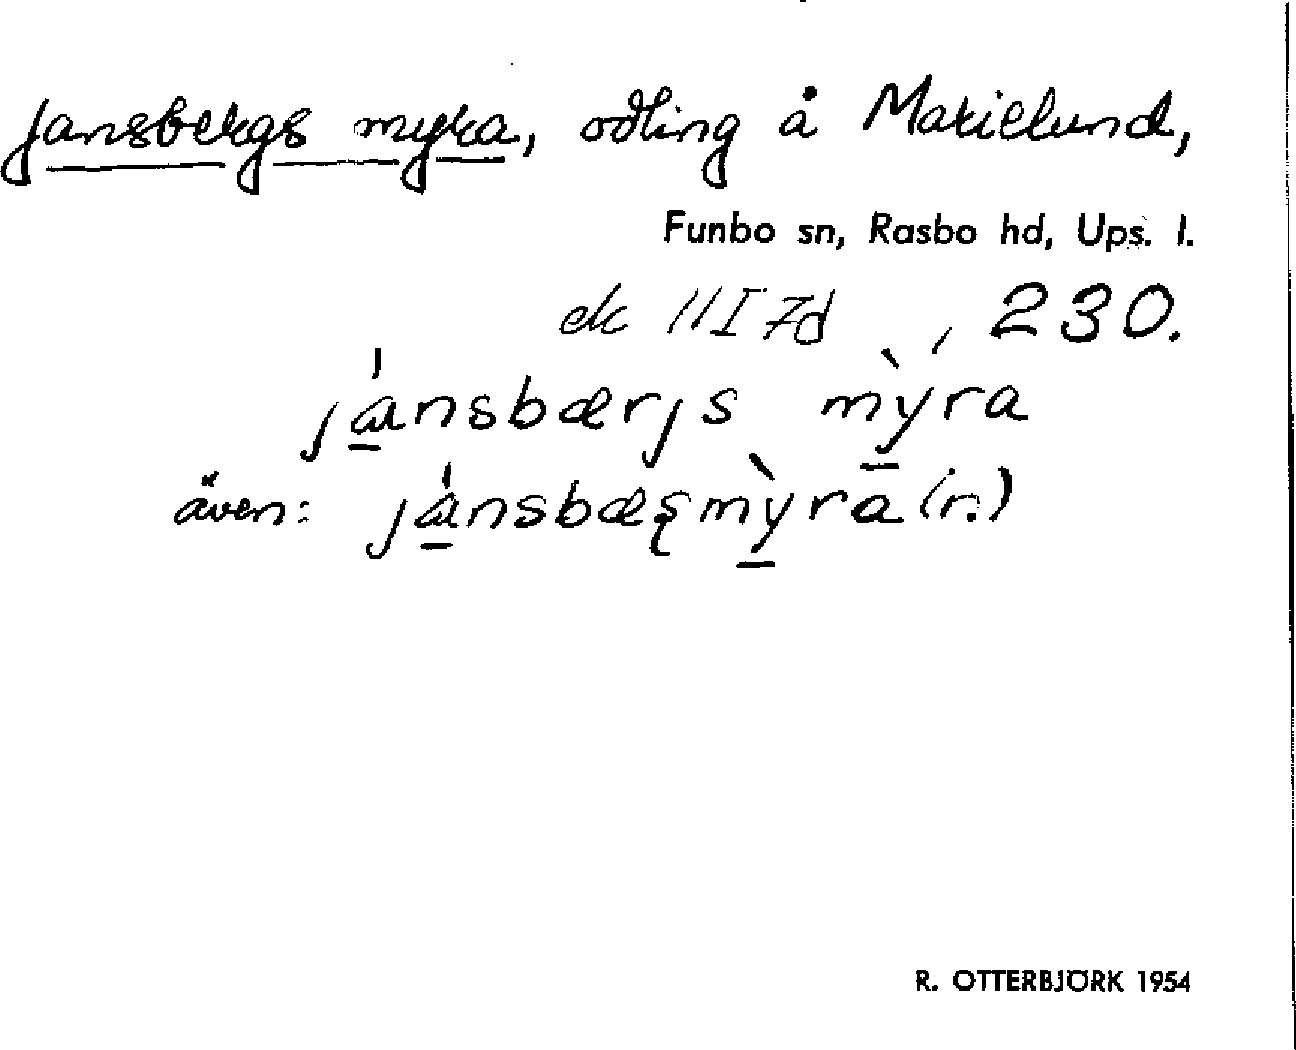 Jansbergs myra, odling å Marielund,
Funbo sn, Rasbo hd, Ups. l.
ek 11I7d , 230.
jánsbærjs mỳra
även: jánsbæʂmỳra (r.)
R. OTTERBJÖRK 1954